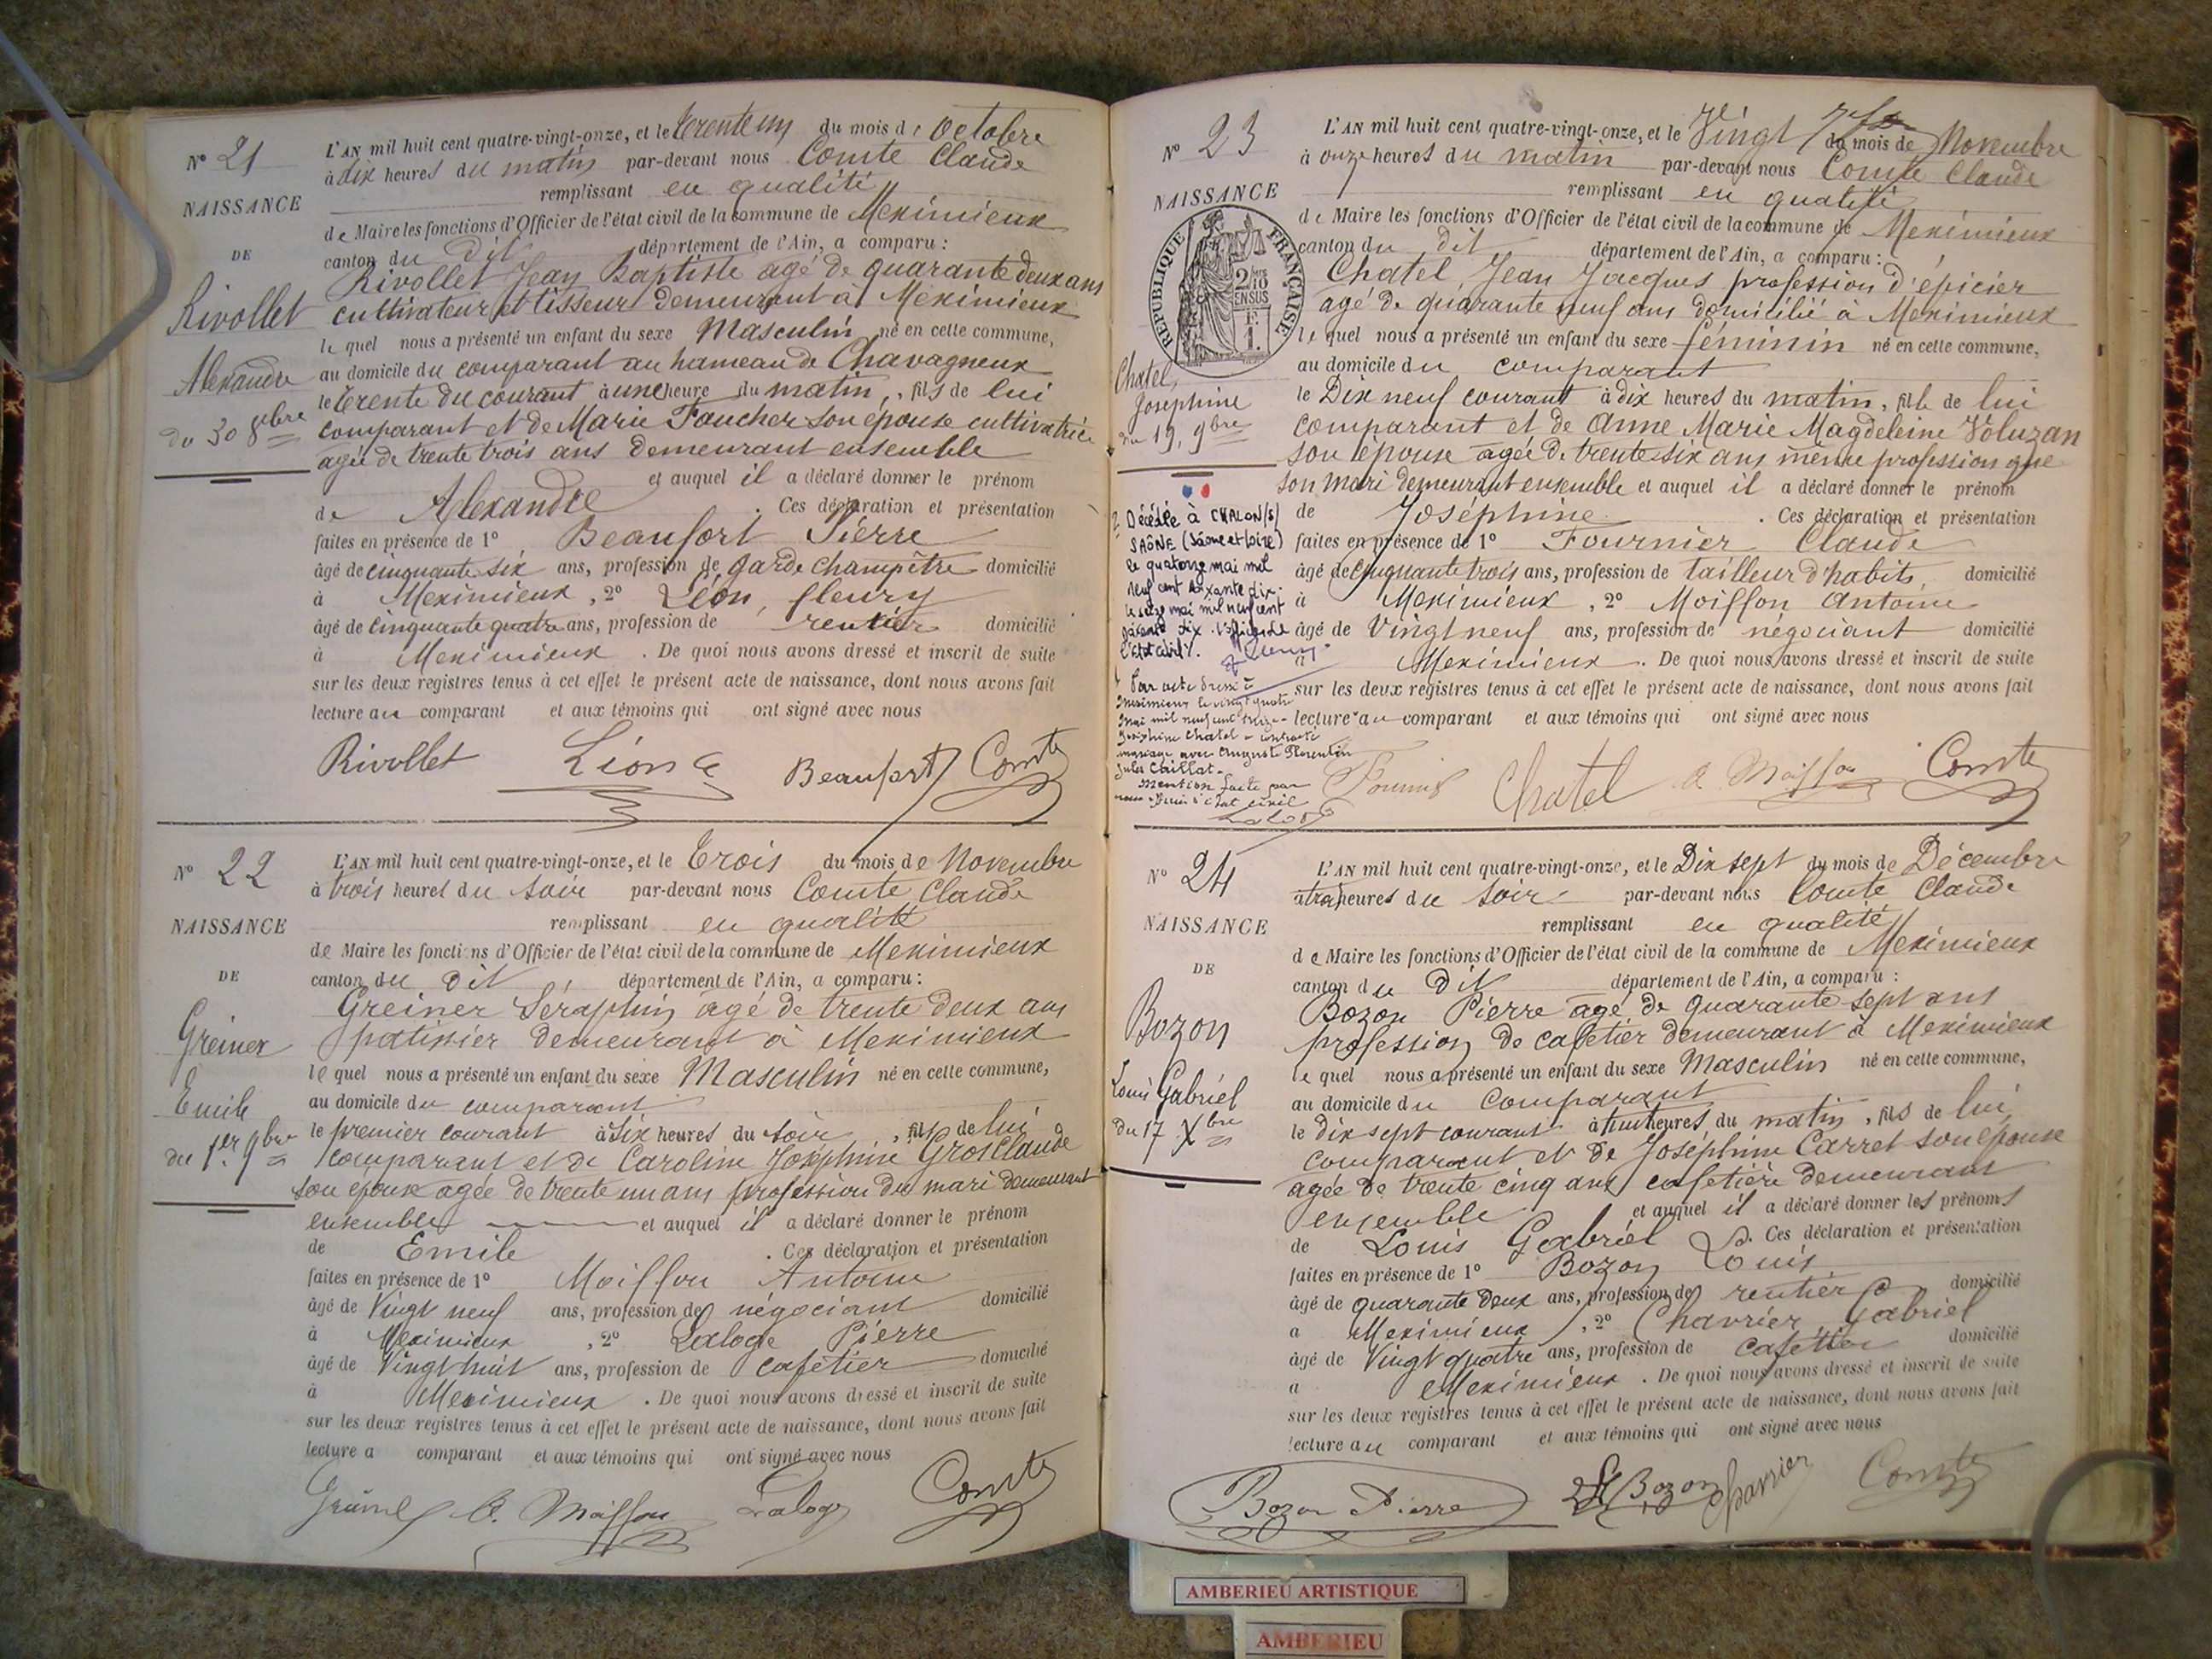 N° 21
NAISSANCE
DE
Rivollet
Alexandre
du 30 8bre
L'AN mil huit cent quatre-vingt-onze, et le Trente un du mois de Octobre
à dix heures du matin par-devant nous Comte Claude
remplissant en qualité
de Maire les fonctions d'Officier de l'état civil de la commune de Meximieux
canton du dit département de l'Ain, a comparu :
Rivollet Jean Baptiste agé de quarante deux ans
cultivateur et tisseur demeurant à Meximieux
le quel nous a présenté un enfant du sexe Masculin né en cette commune,
au domicile du comparant au hameau de Chavagneux
le Trente du courant à une heure du matin, fils de lui
comparant et de Marie Faucher son epouse cultivatrice
agée de trente trois ans demeurant ensemble
et auquel il a déclaré donner le prénom
de Alexandre . Ces déclaration et présentation
faites en présence de 1° Beaufort Pierre
âgé de cinquante six ans, profession de garde champêtre domicilié
à Meximieux , 2° Léon, fleury
âgé de cinquante quatre ans, profession de rentier domicilié
à Meximieux . De quoi nous avons dressé et inscrit de suite
sur les deux registres tenus à cet effet le présent acte de naissance, dont nous avons fait
lecture au comparant et aux témoins qui ont signé avec nous
Rivollet Léon Beaufort Comte
N° 22
NAISSANCE
DE
Greiner
Emile
du 1er 9bre
L'AN mil huit cent quatre-vingt-onze, et le Trois du mois de Novembre
à trois heures du soir par-devant nous Comte Claude
remplissant en qualité
de Maire les fonctions d'Officier de l'état civil de la commune de Meximieux
canton du dit département de l'Ain, a comparu :
Greiner Séraphin agé de trente deux ans
patissier demeurant à Meximieux
le quel nous a présenté un enfant du sexe Masculin né en cette commune,
au domicile du comparant
le premier courant à six heures du soir , fils de lui
comparant et de Caroline Joséphine Grosclaude
son epouse agée de trente un ans profession du mari demeurant
ensemble et auquel il a déclaré donner le prénom
de Emile . Ces déclaration et présentation
faites en présence de 1° Moiffon Antoine
âgé de Vingt neuf ans, profession de négociant domicilié
à Meximieux , 2° Laloge Pierre
âgé de Vingt huit ans, profession de cafetier domicilié
à Meximieux . De quoi nous avons dressé et inscrit de suite
sur les deux registres tenus à cet effet le présent acte de naissance, dont nous avons fait
lecture a comparant et aux témoins qui ont signé avec nous
A. Moiffon Laloge Comte
N° 23
NAISSANCE
RÉPUBLIQUE FRANÇAISE
2/10
EN SUS
E.
1.
Chatel
Joséphine
du 19, 9bre
2. Décédée à CHALON/S/
SAÔNE (Saône et Loire)
le quatorze mai mil
neuf cent soixante dix.
le seize mai mil neuf cent
soixante dix. L'officier de
l'état civil.
1 Par acte dressé à
Meximieux le vingt quatre
Mai mil neuf cent treize
Joséphine Chatel a contracté
mariage avec Auguste Florentin
Jules Caillat.
Mention faite par
L'AN mil huit cent quatre-vingt-onze, et le Vingt du mois de Novembre
à onze heures du matin par-devant nous Comte Claude
remplissant en qualité
de Maire les fonctions d'Officier de l'état civil de la commune de Meximieux
canton du dit département de l'Ain, a comparu :
Chatel, Jean Jacques profession d'épicier
agé de quarante neuf ans domicilié à Meximieux
le quel nous a présenté un enfant du sexe féminin né en cette commune,
au domicile du comparant
le Dix neuf courant à dix heures du matin, fille de lui
comparant et de Anne Marie Magdeleine Voluzan
son épouse agée de trente six ans même profession que
son mari demeurant ensemble et auquel il a déclaré donner le prénom
de Joséphine . Ces déclaration et présentation
faites en présence de 1° Fournier Claude
âgé de Cinquante trois ans, profession de tailleur d'habits, domicilié
à Meximieux , 2° Moiffon Antoine
âgé de Vingt neuf ans, profession de négociant domicilié
à Meximieux . De quoi nous avons dressé et inscrit de suite
sur les deux registres tenus à cet effet le présent acte de naissance, dont nous avons fait
lecture au comparant et aux témoins qui ont signé avec nous
Fournier Chatel A Moiffon Comte
N° 24
NAISSANCE
DE
Bozon
Louis Gabriel
du 17 Xbre
L'AN mil huit cent quatre-vingt-onze, et le Dix sept du mois de Décembre
à trois heures du soir par-devant nous Comte Claude
remplissant en qualité
de Maire les fonctions d'Officier de l'état civil de la commune de Meximieux
canton du dit département de l'Ain, a comparu :
Bozon Pierre agé de quarante sept ans
profession de cafetier demeurant à Meximieux
le quel nous a présenté un enfant du sexe Masculin né en cette commune,
au domicile du comparant
le dix sept courant à huit heures du matin, fils de lui
comparant et de Joséphine Carret son épouse
agée de trente cinq ans cafetière demeurant
ensemble et auquel il a déclaré donner les prénoms
de Louis Gabriel . Ces déclaration et présentation
faites en présence de 1° Bozon Louis
âgé de quarante deux ans, profession de rentier domicilié
à Meximieux , 2° Chavrier Gabriel
âgé de Vingt quatre ans, profession de cafetier domicilié
à Meximieux . De quoi nous avons dressé et inscrit de suite
sur les deux registres tenus à cet effet le présent acte de naissance, dont nous avons fait
lecture au comparant et aux témoins qui ont signé avec nous
Bozon Pierre Bozon Chavrier Comte
AMBERIEU ARTISTIQUE
AMBERIEU